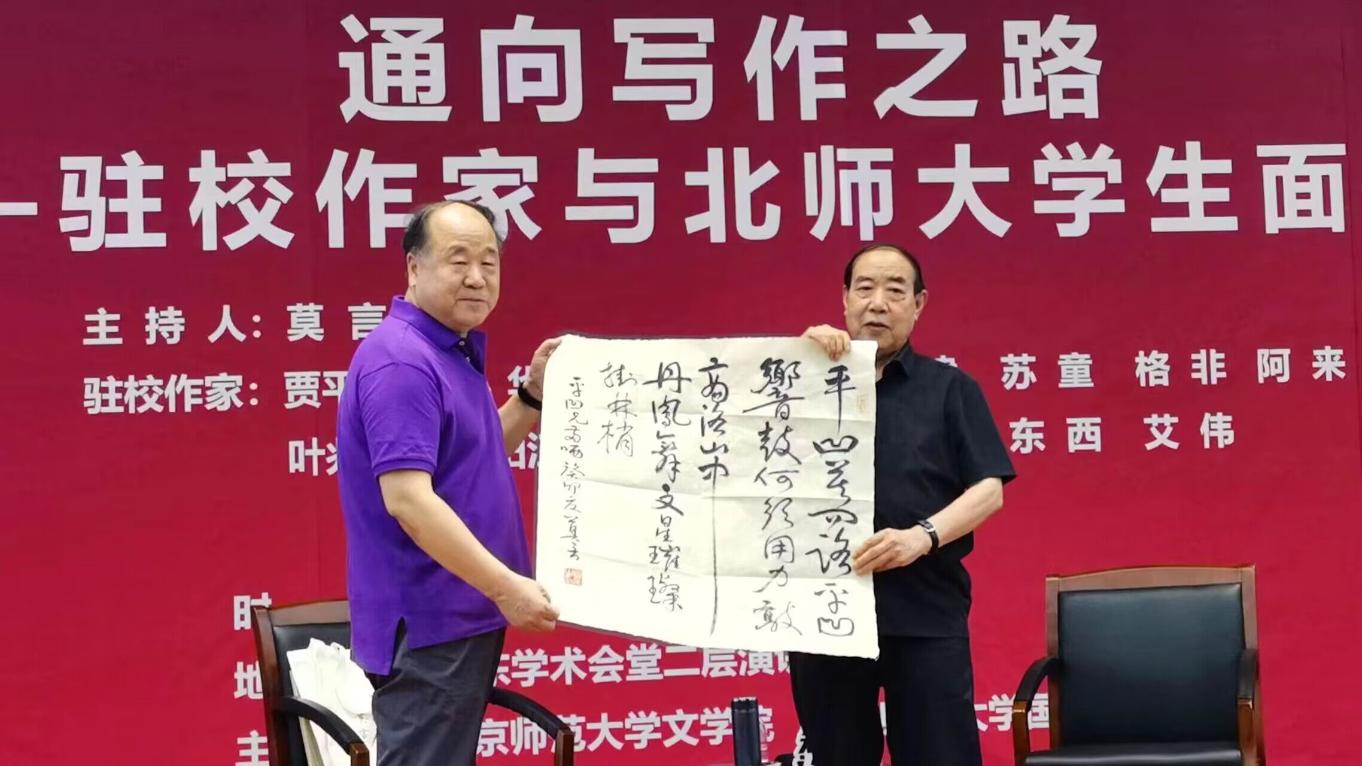 通向写作之路
—驻校作家与北师大学生面
主持人：莫言
驻校作家：贾平 华 苏童 格非 阿来
叶 东西 艾伟
时
地 东学术会堂二层演
主 京师范大学文学院 大学国
平凹 路平凹
響鼓何须用力敲
商洛山中
丹鳳舞文星璀璨
掛林梢
平凹兄 哂 癸卯夏莫言